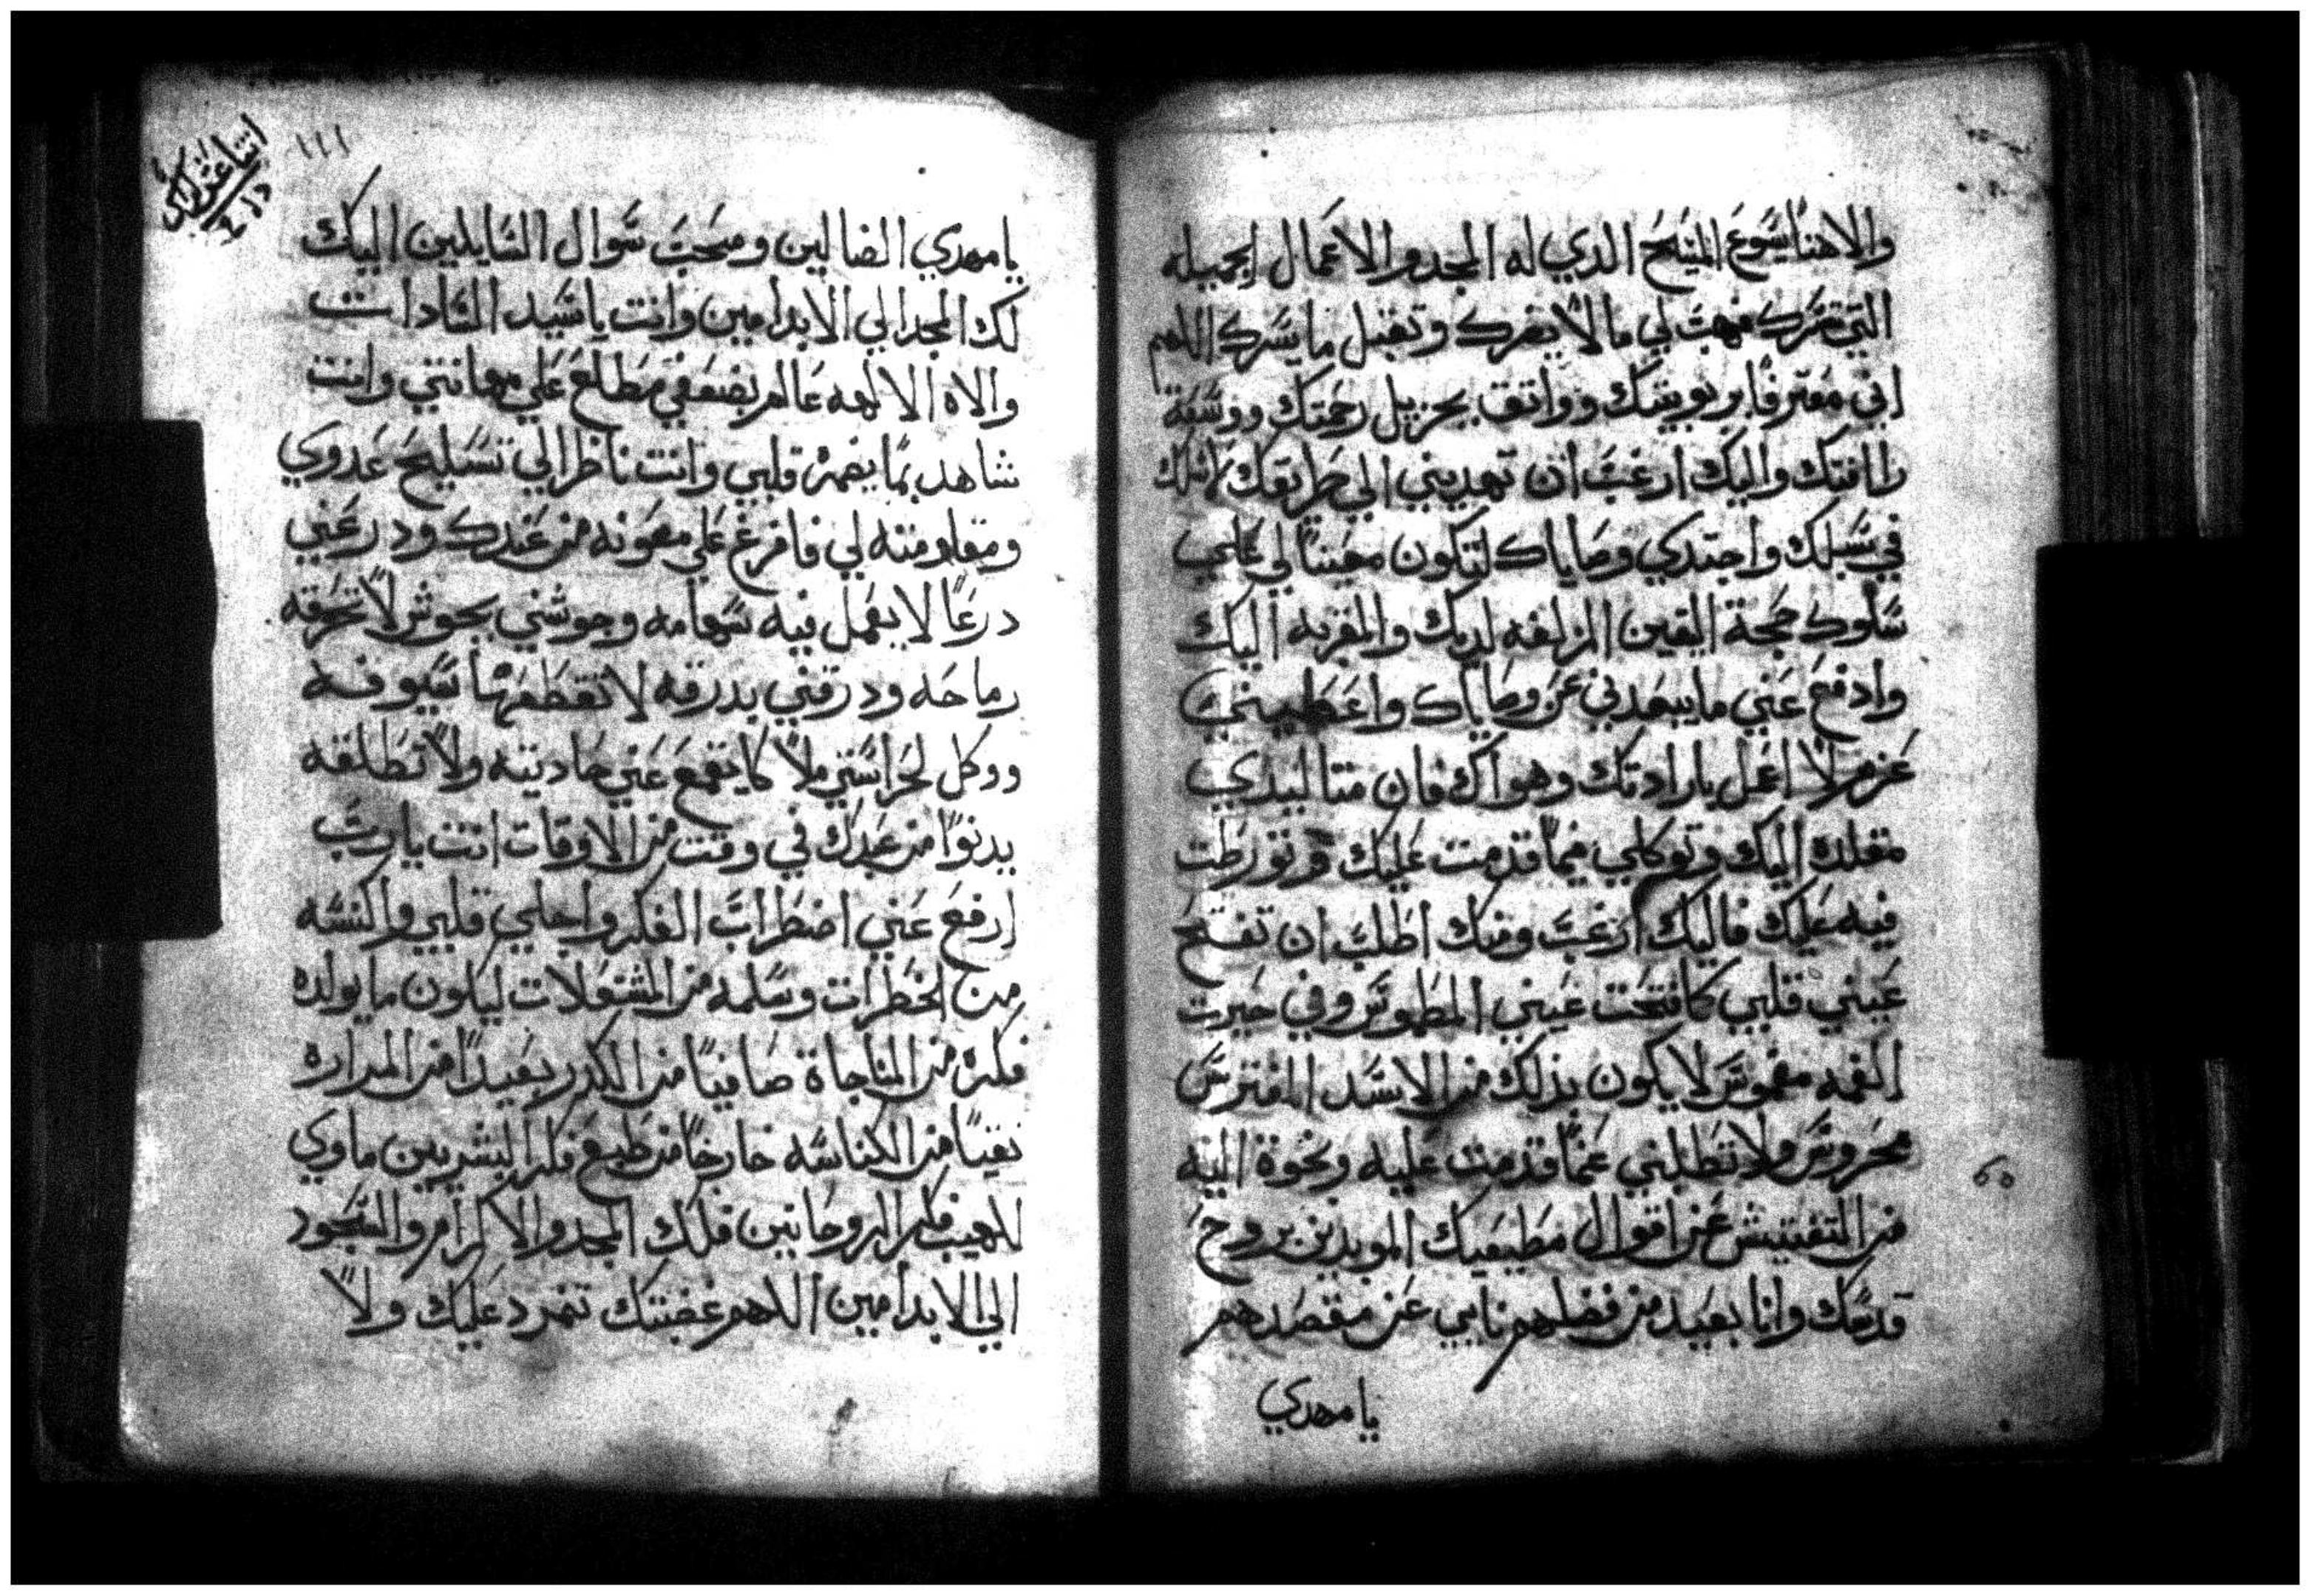 والاهنا يسوع المسيح الدي له المجد والاعمال الجميله
التي تسرك فهب لي مالا يضرك وتقبل ما يسرك اللهم
اني معترفا بربوبيتك وواتق بجزيل رحمتك ووسعة
رافتك واليك ارغب ان تهديني الي طريقك لاسلك
في سبلك واجتدي وصاياك لتكون معينا لي علي
سلوك محجة اليقين المزلفه لديك والمقربه اليك
وادفع عني ما يبعدني عن وصاياك واعطيني
عزم لا اعمل بارادتك وهواك فان متا ليدي
مقلده اليك وتوكلي فيما قدمت عليك وتورطت
فيه عليك فاليك ارغب ومنك اطلب ان تفتح
عيني قلبي كما فتحت عيني المطموس وفي حيرت
الغمه مغموس لا يكون بذلك من الاسد المفترس
محروس ولا تطلبني عما قدمت عليه ونحوة النيه
من التفتيش عن اقوال مطيعيك المويدين بروح
قدسك وانا بعيد من فضلهم نايي عن مقصدهم
يا مهدي
٦٥
اتنا عشر كراس
١١١
يا مهدي الضالين ومحب سوال السايلين اليك
لك المجد الي الابد امين وانت يا سيد السادات
والاه الالهه عالم بضعفي مطلع علي مهانتي وانت
شاهد بما يضمره قلبي وانت ناظر الي تسليح عدوي
ومقاومته لي فافرغ علي معونه من عندك ودرعني
درعا لا يعمل فيه سهامه وجوشني بجوشن لا تخرقه
رماحه ودرقني بدرقه لا تقطعها سيوفه
ووكل لحراستي ملاكا يقمع عني عاديته ولا تطلقه
يدنوا من عبدك في وقت من الاوقات انت يارب
ارفع عني اضطراب الفكر واجلي قلبي واكنسه
من الخطرات وسلمه من المشتغلات ليكون ما يولده
فكره من المناجاة صافيا من الكدر بعيدا من المراره
نقيا من الكناسه خارجا من طبع فكر البشريين ماوي
للهيب فكر الروحانيين فلك المجد والاكرام والسجود
الي الابد امين اللهم غضبتك تمرد عليك ولا